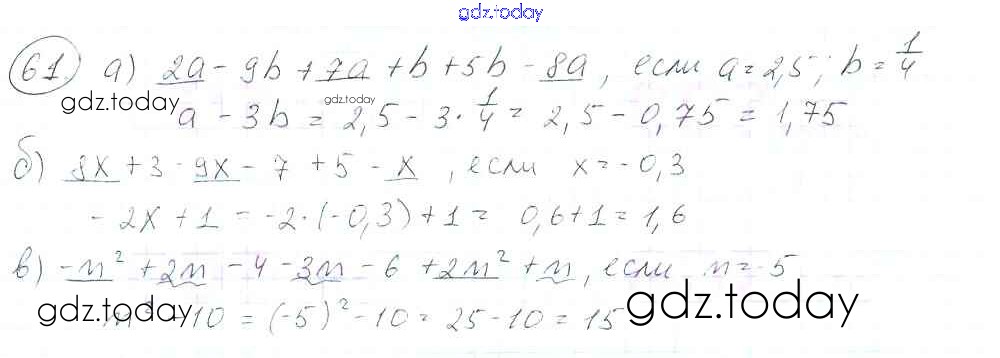 gdz.today
61. а) 2a - 9b + 7a + b + 5b - 8a, если a = 2,5; b = 1/4
gdz.today
gdz.today
a - 3b = 2,5 - 3·1/4 = 2,5 - 0,75 = 1,75
б) 8x + 3 - 9x - 7 + 5 - x, если x = -0,3
-2x + 1 = -2·(-0,3) + 1 = 0,6 + 1 = 1,6
в) -n² + 2n - 4 - 3n - 6 + 2n² + n, если n = -5
gdz.today
- 10 = (-5)² - 10 = 25 - 10 = 15
gdz.today